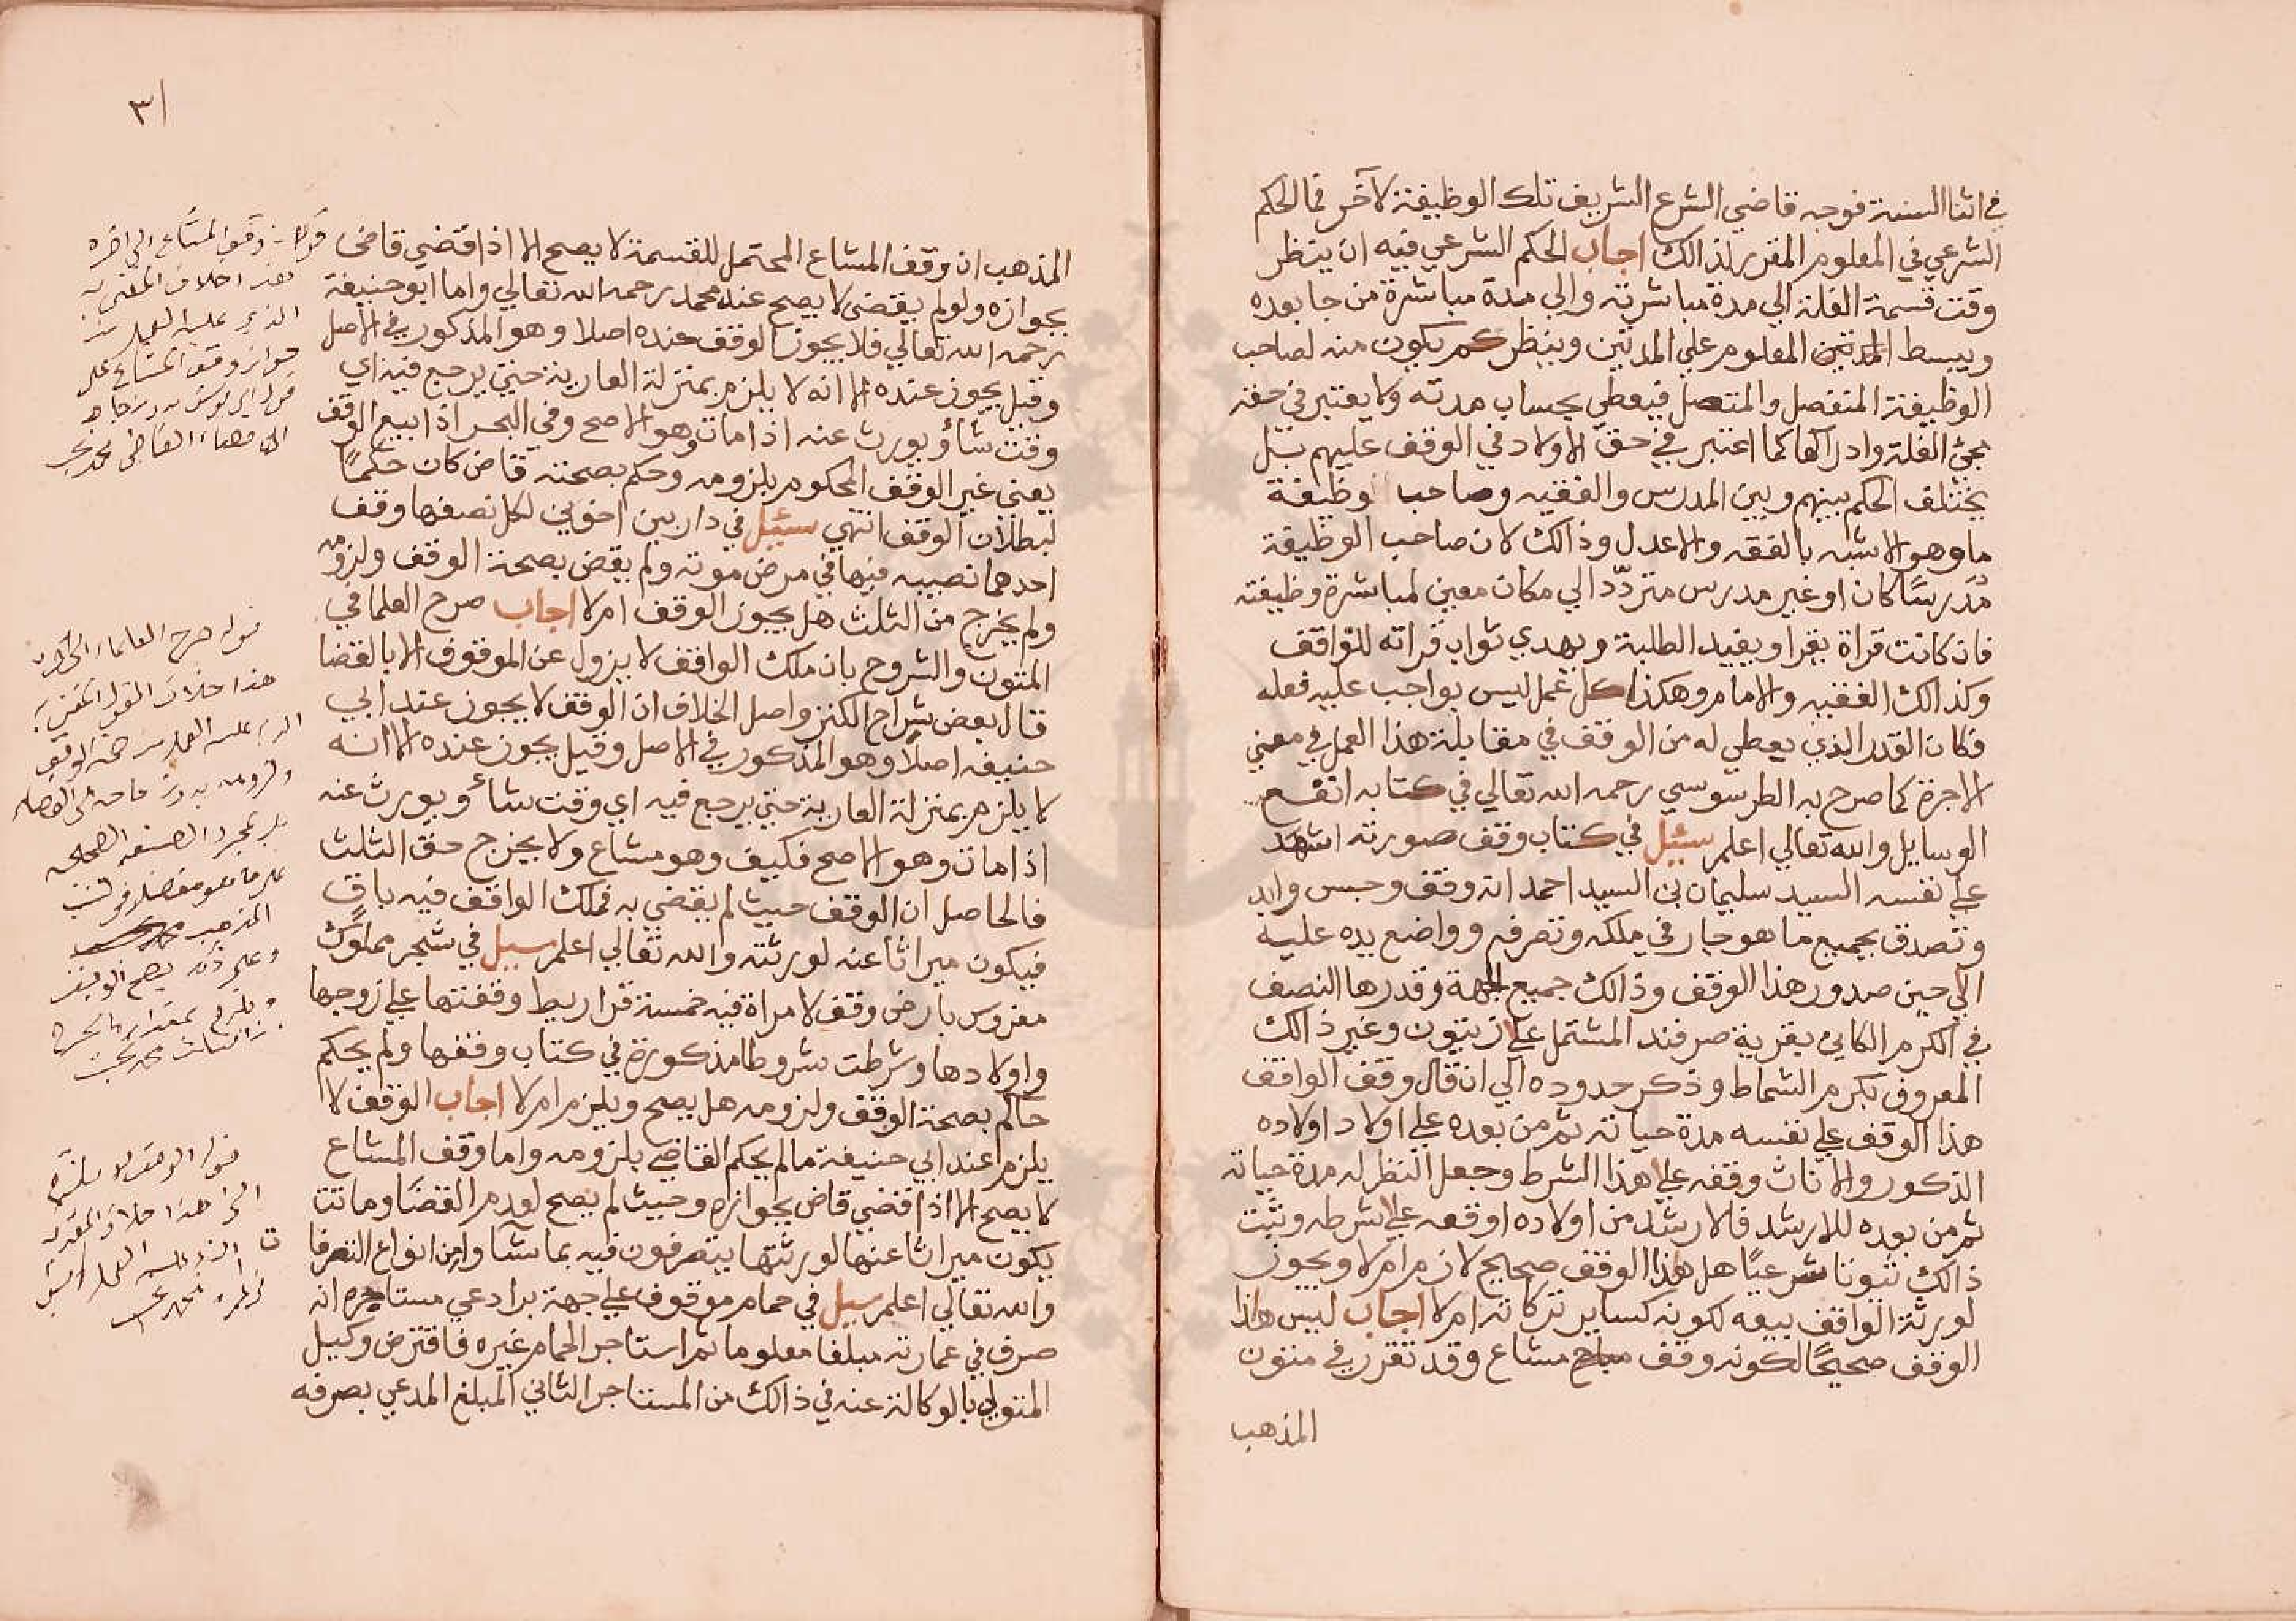 في اثنا السنة فوجه قاضي الشرع الشريف تلك الوظيفة لاخر فما الحكم
الشرعي في المعلوم المقرر لذالك اجاب الحكم الشرعي فيه ان ينظر
وقت قسمة الغلة الي مدة مباشرته والي مدة مباشرة من جا بعده
ويبسط المعلوم علي المدتين وينظر كم يكون منه لصاحب
الوظيفة المنفصل والمتصل فيعطي بحساب مدته ولا يعتبر في حقه
مجئ الغلة وادراكها كما اعتبر في حق الاولاد في الوقف عليهم بل
يختلف الحكم بينهم وبين المدرس والفقيه وصاحب وظيفة
ما وهو الاشبه بالفقه والاعدل وذالك لان صاحب الوظيفة
مدرسًا كان او غير مدرس متردّد الي مكان معين لمباشرة وظيفته
فان كانت قراة يقرا ويفيد الطلبة ويهدي ثواب قراته للواقف
وكذالك الفقيه والامام وهكذا كل عمل ليس بواجب عليه فعله
فكان القدر الذي يعطي له من الوقف في مقابلة هذا العمل في معني
الاجرة كما صرح به الطرسوسي رحمه الله تعالي في كتابه انفع
الوسايل والله تعالي اعلم سئيل في كتاب وقف صورته اشهد
علي نفسه السيد سليمان بن السيد احمد انه وقف وحبس وابد
وتصدق بجميع ما هو جار في ملكه وتصرفه وواضع يده عليه
الي حين صدور هذا الوقف وذالك جميع الحصة وقدرها النصف
في الكرم الكاين بقرية صرفند المشتمل علي زيتون وغير ذالك
المعروف بكرم الشماط وذكر حدوده الي ان قال وقف الواقف
هذا الوقف علي نفسه مدة حياته ثم من بعده علي اولاد اولاده
الذكور والاناث وقفه علي هذا الشرط وجعل النظر له مدة حياته
ثم من بعده للارشد فالارشد من اولاده اوقعه علي شرطه وثبت
ذالك ثبوتا شرعيًا هل هذا الوقف صحيح لازم ام لا ويجوز
لورثة الواقف بيعه لكونه كساير تركاته ام لا اجاب ليس هاذا
الوقف صحيحًا لكونه وقف مشاع وقد تقرر في متون
المذهب
٣١
المذهب ان وقف المشاع المحتمل للقسمة لا يصح الا اذا قضي قاضى
بجوازه ولو لم يقضى لا يصح عند محمد رحمه الله تعالي واما ابو حنيفة
رحمه الله تعالي فلا يجوز الوقف عنده اصلا وهو المذكور في الاصل
وقيل يجوز عنده الا انه لا يلزم بمنزلة العارية حتي يرجع فيه اي
وقت شاؤ ويورث عنه اذا مات وهو الاصح وفي البحر اذا بيع الوقف
يعني غير الوقف المحكوم بلزومه وحكم بصحته قاض كان حكمًا
لبطلان الوقف انتهي سئيل في دار بين اخوين لكل نصفها وقف
احدهما نصيبه فيها في مرض موته ولم يقض بصحة الوقف ولزومه
ولم يخرج من الثلث هل يجوز الوقف ام لا اجاب صرح العلما في
المتون والشروح بان ملك الواقف لا يزول عن الموقوف الا بالقضا
قال بعض شراح الكنز واصل الخلاف ان الوقف لا يجوز عند ابي
حنيفه اصلاً وهو المذكور في الاصل وقيل يجوز عنده الا انه
لا يلزم بمنزلة العارية حتي يرجع فيه اي وقت شاؤ ويورث عنه
اذا مات وهو الاصح فكيف وهو مشاع ولا يخرج من الثلث
فالحاصل ان الوقف حيث لم يقضي به فملك الواقف فيه باق
فيكون ميراثا عنه لورثته والله تعالي اعلم سيل في شجر مملوك
مغروس بارض وقف لامراة فيه خمسة قراريط وقفتها علي زوجها
واولادها وشرطت شروطا مذكورة في كتاب وقفها ولم يحكم
حاكم بصحة الوقف ولزومه هل يصح ويلزم ام لا اجاب الوقف لا
يلزم عند ابي حنيفة مالم يحكم القاضي بلزومه واما وقف المشاع
لا يصح الا اذا قضي قاض بجوازه وحيث لم يصح لعدم القضا وماتت
يكون ميراثا عنها لورثتها يتصرفون فيه بما شاوا من انواع التصرفات
والله تعالي اعلم سيل في حمام موقوف علي جهة بر ادعي مستاجره انه
صرف في عمارته مبلغا معلوما ثم استاجر الحمام غيره فاقترض وكيل
المتولي بالوكالة عنه في ذالك من المستاجر الثاني المبلغ المدعي بصرفه
قوله وقف المشاع الي اخره
هذا خلاف المفتى به
الذي عليه العمل من
جواز وقف المشاع على
قول ابي يوسف بدون حاجة
الى قضاء القاضى محمد
قوله صرح العلماء الخ
هذا خلاف القول المفتى به
الذي عليه العمل من صحة الوقف
ولزومه بدون حاجة الى القضاء
بل بمجرد الصيغه الصحيحه
على ما هو مفصل في كتب
المذهب
قوله الوقف لا يلزم
الخ هذا خلاف المفتى به
الذي عليه العمل